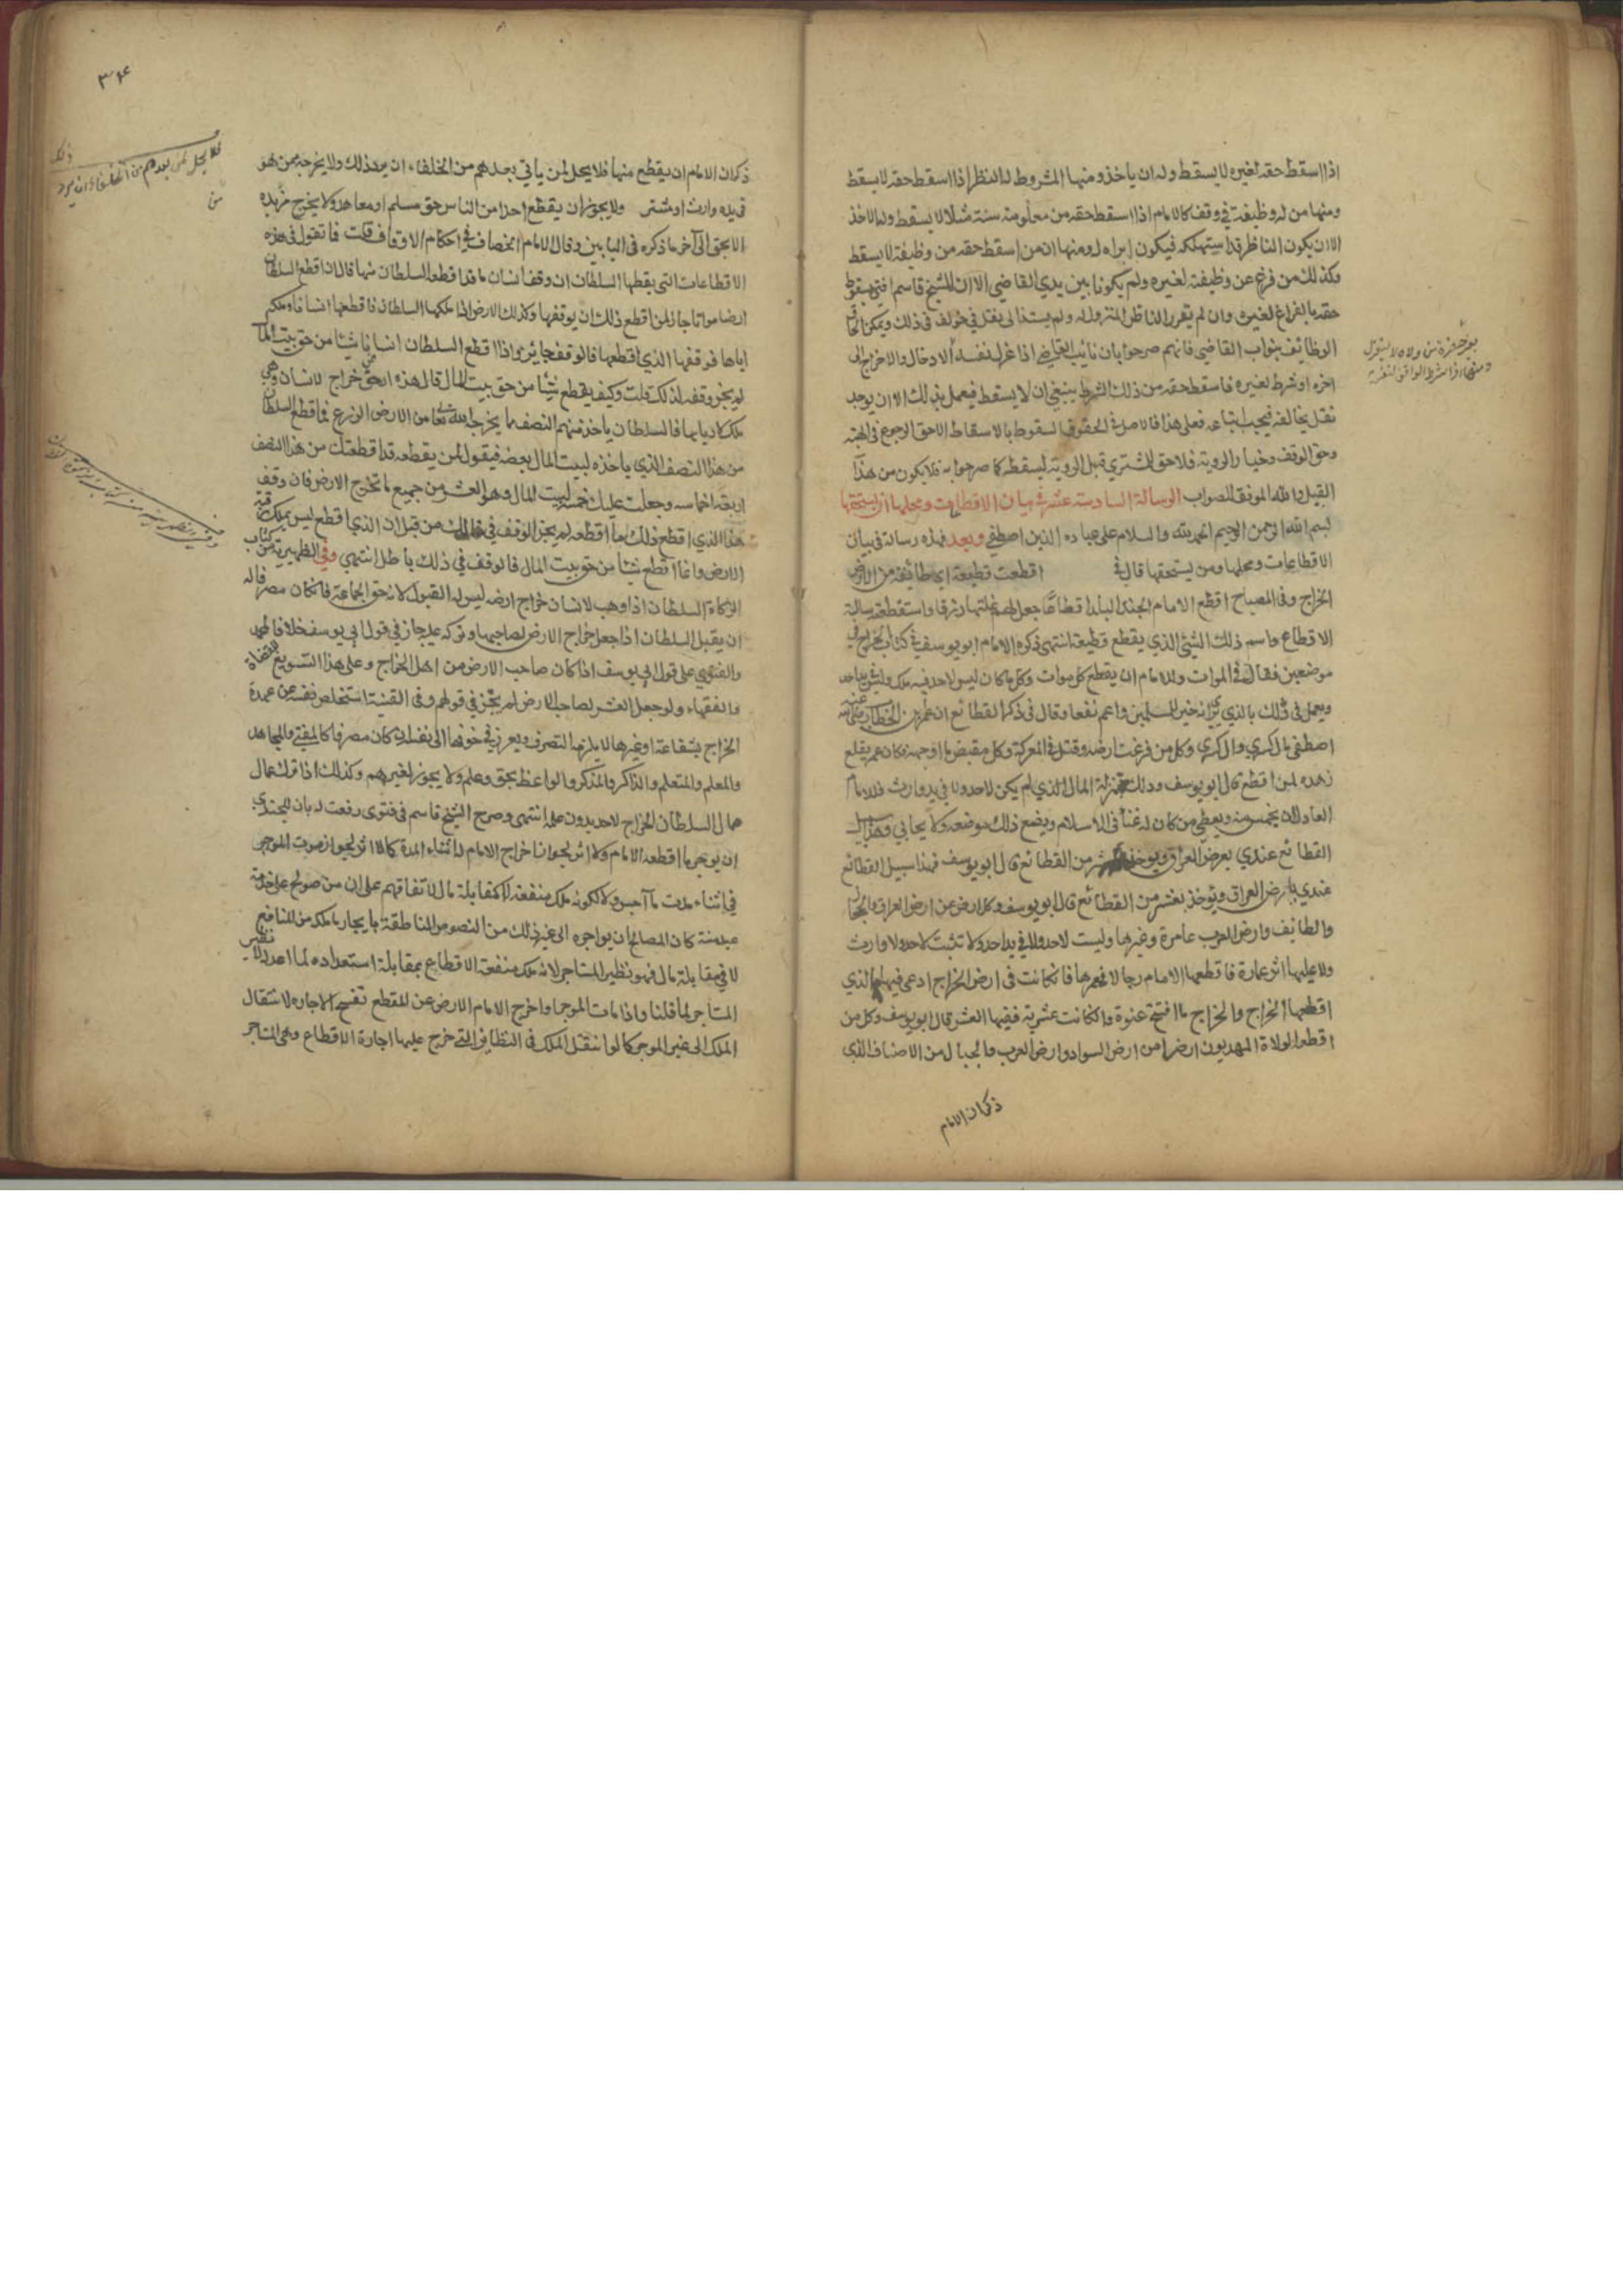 اذا اسقط حقه لغيره لا يسقط وله ان ياخذ ومنها المشروط له النظر اذا اسقط حقه لا يسقط
ومنها من له وظيفة في وقف كالامام اذا اسقط حقه من معلومه سنة مثلا لا يسقط وله الاخذ
الا ان يكون الناظر قد استهلكه فيكون ابراء له ومنها ان من اسقط حقه من وظيفة لا يسقط
وكذلك من فرغ عن وظيفته لغيره ولم يكونا بين يدي القاضي الا ان الشيخ قاسم افتى بسقوط
حقه بالفراغ لغيره وان لم يقرر الناظر المنزول له ولم يستند الى نقل في ذلك ويمكن
الوظائف بنواب القاضي فانهم صرحوا بان نائب القاضي اذا عزل نفسه الادخال والاخراج الى
اخره او شرط لغيره فاسقط حقه من ذلك الشرط ينبغي ان لا يسقط فيعمل بذلك الا ان يوجد
نقل يخالفه فيجب اتباعه فعلى هذا فالاصل في الحقوق السقوط بالاسقاط الا حق الرجوع في الهبة
وحق الوقف وخيار الروية فلا حق للمشتري قبل الروية ليسقطه كما صرحوا به فلا يكون من هذا
القبيل والله الموفق للصواب الرسالة السادسة عشر في بيان الاقطاعات ومحلها ان يستحقها
بسم الله الرحمن الرحيم الحمد لله والسلام على عباده الذين اصطفى وبعد فهذه رسالة في بيان
الاقطاعات ومحلها ومن يستحقها قال في اقطعت قطيعة اي طائفة من ارض
الخراج وفي المصباح اقطع الامام الجند البلد اقطاعا جعل لهم غلتها رزقا واستقطعته سالته
الاقطاع واسم ذلك الشيئ الذي يقطع قطيعة انتهى ذكره الامام ابو يوسف في كتاب الخراج في
موضعين فقال في الموات وللامام ان يقطع كل موات وكل ما كان ليس لاحد فيه ملك وليس بيد احد
ويعمل في ذلك بالذي يرى انه خير للمسلمين واعم نفعا وقال في ذكر القطائع ان عمر بن الخطاب
اصطفى مال كسرى وال كسرى وكل من فر عن ارضه وقتل في المعركة وكل مقبض ما او جمة فكان عمر يقطع
من هذه لمن اقطع قال ابو يوسف وذلك بمنزلة المال الذي لم يكن لاحد ولا في يد وارث فللامام
العادل ان يجيز منه ويعطي من كان له غناء في الاسلام ويضع ذلك موضعه ولا يحابي
القطائع عندي بارض العراق ويوخذ من القطائع قال ابو يوسف فهذا سبيل القطائع
عندي بارض العراق ويوخذ بعشر من القطائع قال ابو يوسف وكل ارض من ارض العراق والحجاز
والطائف وارض العرب عامرة وغيرها وليست لاحد ولا في يد احد ولا تثبت لاحد ولا وارث
ولا عليها اثر عمارة فاقطعها الامام رجلا فعمرها فان كانت في ارض الخراج ادى فيها الذي
اقطعها الخراج والخراج ما افتتح عنوة وان كانت عشرية ففيها العشر قال ابو يوسف وكل من
اقطعه الولاة المهديون ارضا من ارض السواد وارض العرب والجبال من الاصناف الذي
ذكر ان الامام
٣٦٤
ذكر ان الامام ان يقطع منها فلا يحل لمن ياتي بعدهم من الخلفاء ان يرد ذلك ولا يخرجه ممن هو
في يده وارث او مشتر ولا يجوز ان يقطع احدا من الناس حق مسلم او معاهد ولا يخرج من يده
الا بحق الى آخر ما ذكره في البابين وقال الامام الخصاف في احكام الاوقاف قلت فما تقول في هذه
الاقطاعات التي يقطعها السلطان ان وقف انسان ما قد اقطعه السلطان منها قال ان اقطع السلطان
ارضا مواتا جاز لمن اقطع ذلك ان يوقفها وكذلك الارض اذا ملكها السلطان فاقطعها انسانا وملكه
اياها فوقفها الذي اقطعها فالوقف جائز واذا اقطع السلطان انسانا شيئا من حق بيت المال
لم يجز وقفه لذلك قلت وكيف يقطع شيئا من حق بيت المال قال هذه ارض خراج لانسان وهي
ملك لاربابها فالسلطان ياخذ منهم النصف مما يخرجه الله تعالى من الارض الزرع فاقطع السلطان
من هذا النصف الذي ياخذه لبيت المال بعضه فيقول لمن يقطعه قد اقطعتك من هذا النصف
اربعة اخماسه وجعلت عليك خمسه لبيت المال وهو العشر من جميع ما تخرج الارض فان وقف
هذا الذي اقطع ذلك ما اقطعه لم يجز الوقف في ذلك من قبل ان الذي اقطع ليس يملك رقبة
الارض وانما اقطع شيئا من حق بيت المال فالوقف في ذلك باطل انتهى وفي الظهيرية من كتاب
الزكاة السلطان اذا وهب لانسان خراج ارضه ليس له القبول لانه حق الجماعة فان كان مصرفا له
ان يقبل السلطان اذا جعل خراج الارض لصاحبها وتركه عليه جاز في قول ابي يوسف خلافا لمحمد
والفتوى على قول ابي يوسف اذا كان صاحب الارض من اهل الخراج وعلى هذا التسويغ للقضاة
والفقهاء ولو جعل العشر لصاحب الارض لم يجز في قولهم وفي القنية استخلص نفسه من عهدة
الخراج بشفاعة او غيرها لا يلزمه التصرف ويعرف في خوفها الى نفسه ان كان مصرفا كالمفتي والمجاهد
والمعلم والمتعلم والذاكر والمذكر والواعظ بحق وعلم ولا يجوز لغيرهم وكذلك اذا ترك عمال
السلطان الخراج لاحد بدون علمه انتهى وصرح الشيخ قاسم في فتوى رفعت له بان للجندي
ان يوجر ما اقطعه الامام ولا اثر لجواز اخراج الامام له اثناء المدة كما لا اثر لجواز موت الموجر
في اثناء مدت ولا لكونه ملك منفعة لا بمقابلة مال لاتفاقهم على ان من صولح على خدمة
عبد سنة كان للمصالح ان يواجره الى غير ذلك من النصوص الناطقة بايجار ما ملكه من المنافع
لا في مقابلة مال فهو نظير المستاجر لانه ملك منفعة الاقطاع بمقابلة استعداده لما اعد له
المستاجر لما قلنا واذا مات الموجر او اخرج الامام الارض عن المقطع تفسخ الاجارة لانتقال
الملك الى غير الموجر كما لو انتقل الملك في النظائر التي خرج عليها اجارة الاقطاع وهي المستاجر
فلا يحل لمن بعدهم من الخلفاء ان يرد ذلك